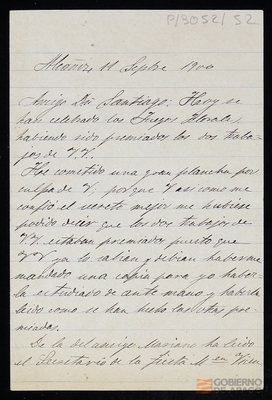 P/3052/52
Alcañiz, 11 Septre 1900
Amigo Dn Santiago: Hoy se
han celebrado los Juegos Florales,
habiendo sido premiados los dos traba-
jos de VV.
He cometido una gran plancha por
culpa de V. porque V así como me
confió el secreto mejor me hubiese
podido decir que los dos trabajos de
VV. estaban premiados puesto que
VV ya lo sabían y debían haberme
mandado una copia para yo haber-
la estudiado de ante mano y haberla
leído como se han hecho las otras pre-
miadas.
De la del amigo Mariano ha leído
el Secretario de la fiesta
GOBIERNO
DE ARAGON